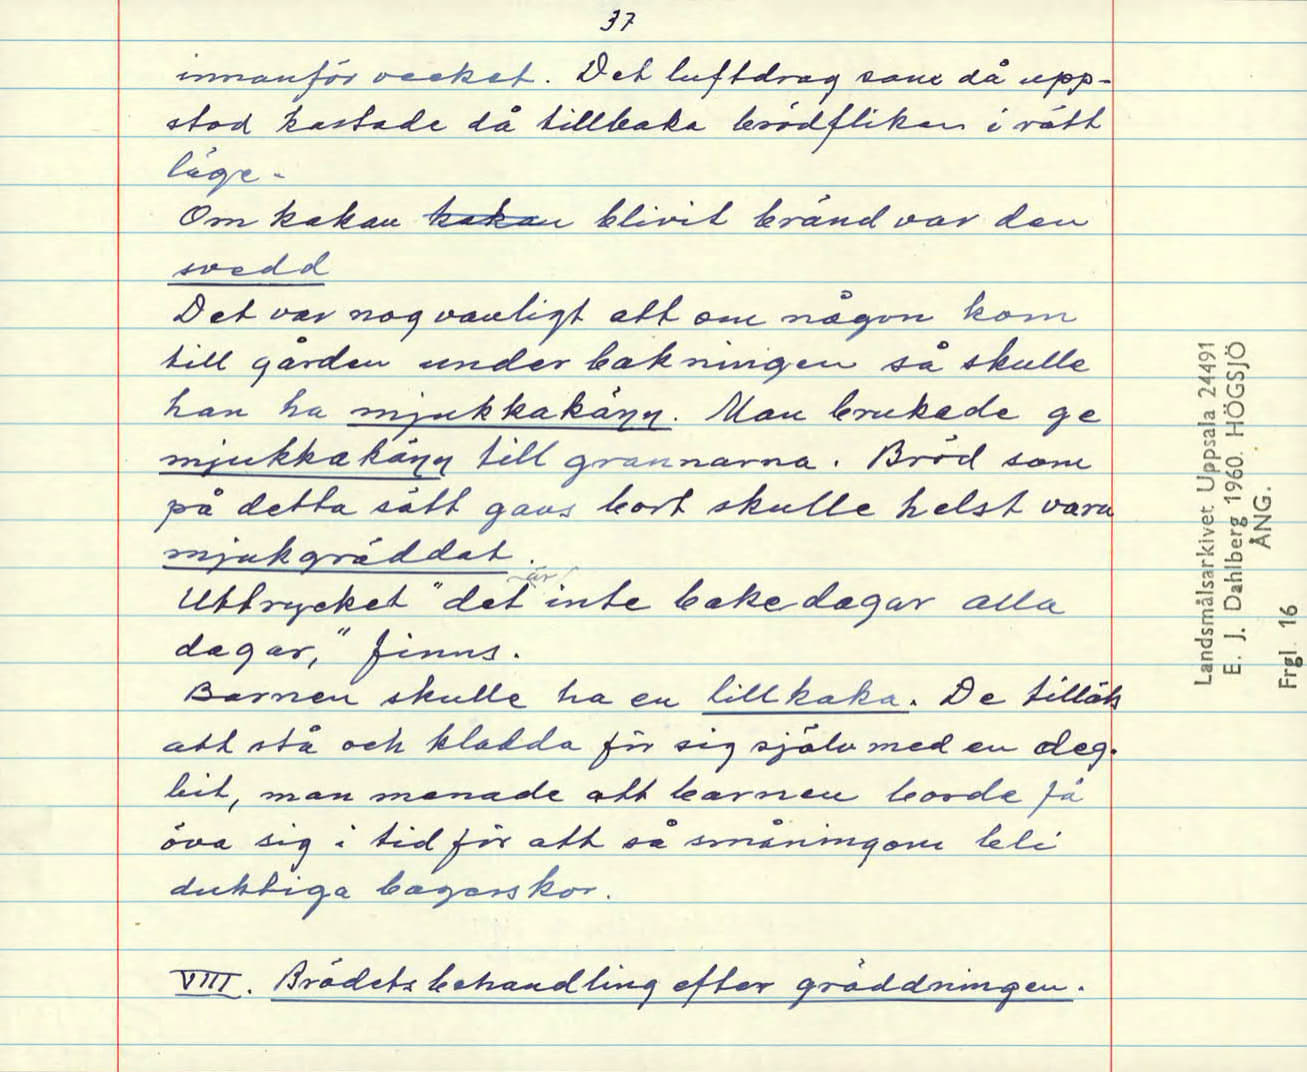 37
innanför vecket. Det luftdrag som då upp-
stod kastade då tillbaka brödfliken i rätt
läge.
Om kakan kakan blivit bränd var den
svedd
Det var nog vanligt att om någon kom
till gården under bakningen så skulle
han ha mjukkakäŋŋ. Man brukade ge
mjukkakäŋŋ till grannarna. Bröd som
på detta sätt gavs bort skulle helst vara
mjukgräddat.
Uttrycket "det är inte bakedagar alla
dagar," finns.
Barnen skulle ha en lillkaka. De tilläts
att stå och kladda för sig själv med en deg-
bit, man menade att barnen borde få
öva sig i tid för att så småningom bli
duktiga bagerskor.
VIII. Brödets behandling efter gräddningen.
Landsmålsarkivet Uppsala 24491
E. J. Dahlberg 1960. HÖGSJÖ
ÅNG.
Frgl. 16